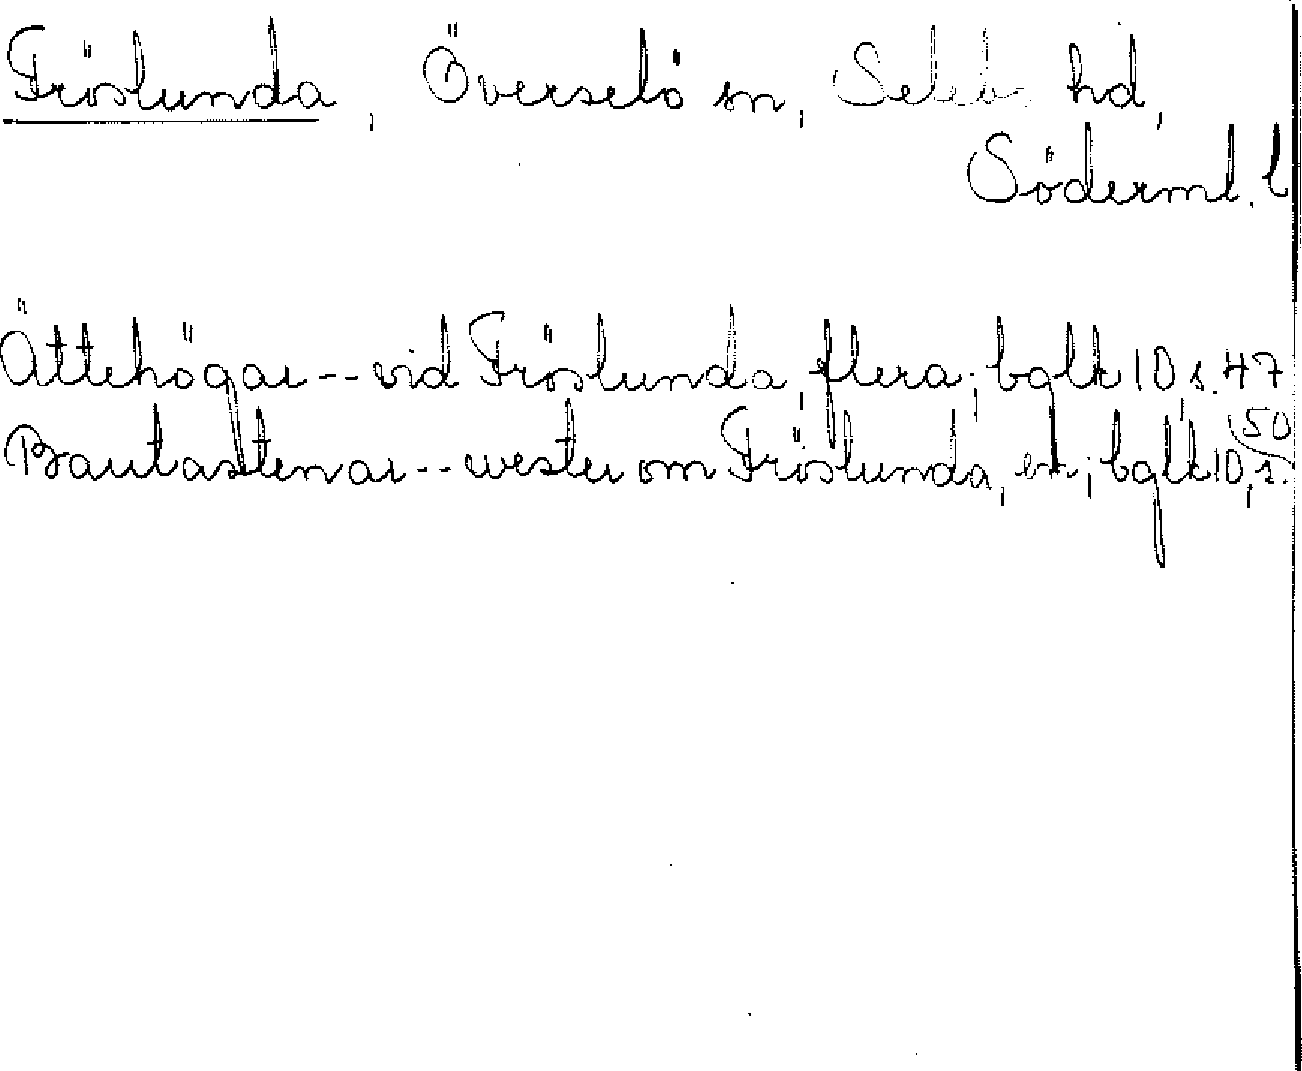 Fröslunda, Överselö sn, Selebo hd,
Söderml. l
Ättehögar -- vid Fröslunda, flera; bglk 10, s. 47
Bautastenar -- wester om Fröslunda, en; bglk 10, s. 50